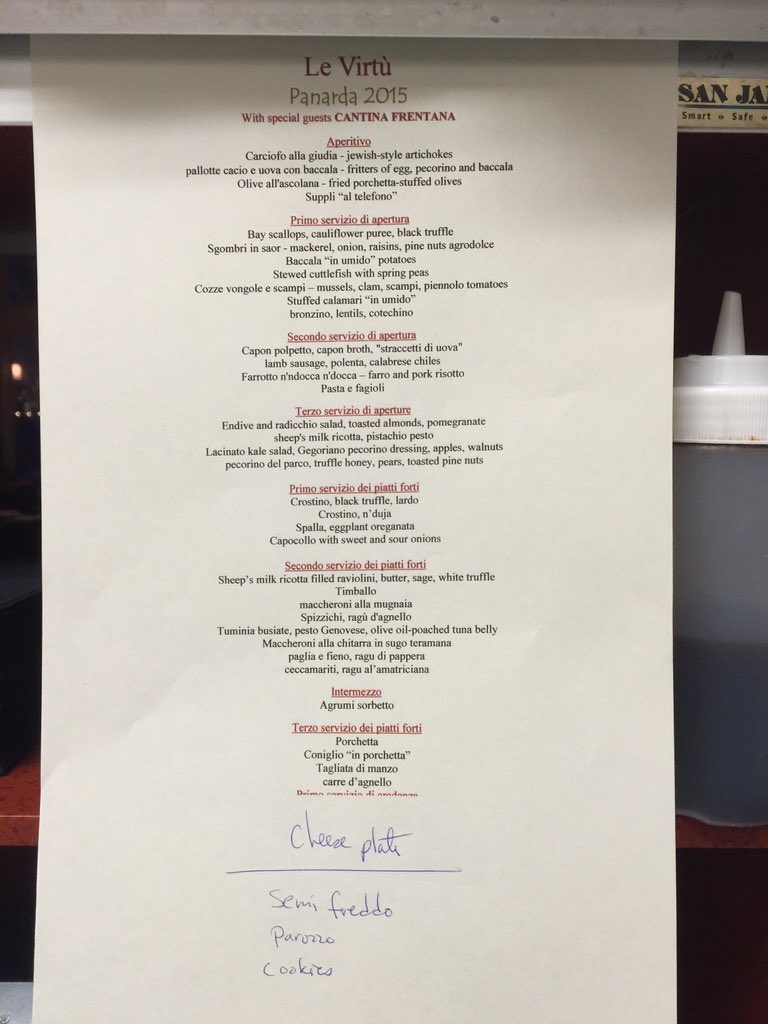 Le Virtù
Panarda 2015
With special guests CANTINA FRENTANA
Aperitivo
Carciofo alla giudia - jewish-style artichokes
pallotte cacio e uova con baccala - fritters of egg, pecorino and baccala
Olive all'ascolana - fried porchetta-stuffed olives
Suppli “al telefono”
Primo servizio di apertura
Bay scallops, cauliflower puree, black truffle
Sgombri in saor - mackerel, onion, raisins, pine nuts agrodolce
Baccala “in umido” potatoes
Stewed cuttlefish with spring peas
Cozze vongole e scampi – mussels, clam, scampi, piennolo tomatoes
Stuffed calamari “in umido”
bronzino, lentils, cotechino
Secondo servizio di apertura
Capon polpetto, capon broth, "straccetti di uova"
lamb sausage, polenta, calabrese chiles
Farrotto n'ndocca n'docca – farro and pork risotto
Pasta e fagioli
Terzo servizio di aperture
Endive and radicchio salad, toasted almonds, pomegranate
sheep's milk ricotta, pistachio pesto
Lacinato kale salad, Gegoriano pecorino dressing, apples, walnuts
pecorino del parco, truffle honey, pears, toasted pine nuts
Primo servizio dei piatti forti
Crostino, black truffle, lardo
Crostino, n’duja
Spalla, eggplant oreganata
Capocollo with sweet and sour onions
Secondo servizio dei piatti forti
Sheep’s milk ricotta filled raviolini, butter, sage, white truffle
Timballo
maccheroni alla mugnaia
Spizzichi, ragù d'agnello
Tuminia busiate, pesto Genovese, olive oil-poached tuna belly
Maccheroni alla chitarra in sugo teramana
paglia e fieno, ragu di pappera
ceccamariti, ragu al’amatriciana
Intermezzo
Agrumi sorbetto
Terzo servizio dei piatti forti
Porchetta
Coniglio “in porchetta”
Tagliata di manzo
carre d’agnello
Primo servizio di
Cheese plate
Semi freddo
Parozzo
Cookies
SAN JA
Smart Safe